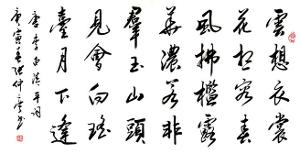 雲想衣裳
花想容春
風拂檻露
華濃若非
羣玉山頭
見會向瑤
臺月下逢
唐李白清平
庚寅